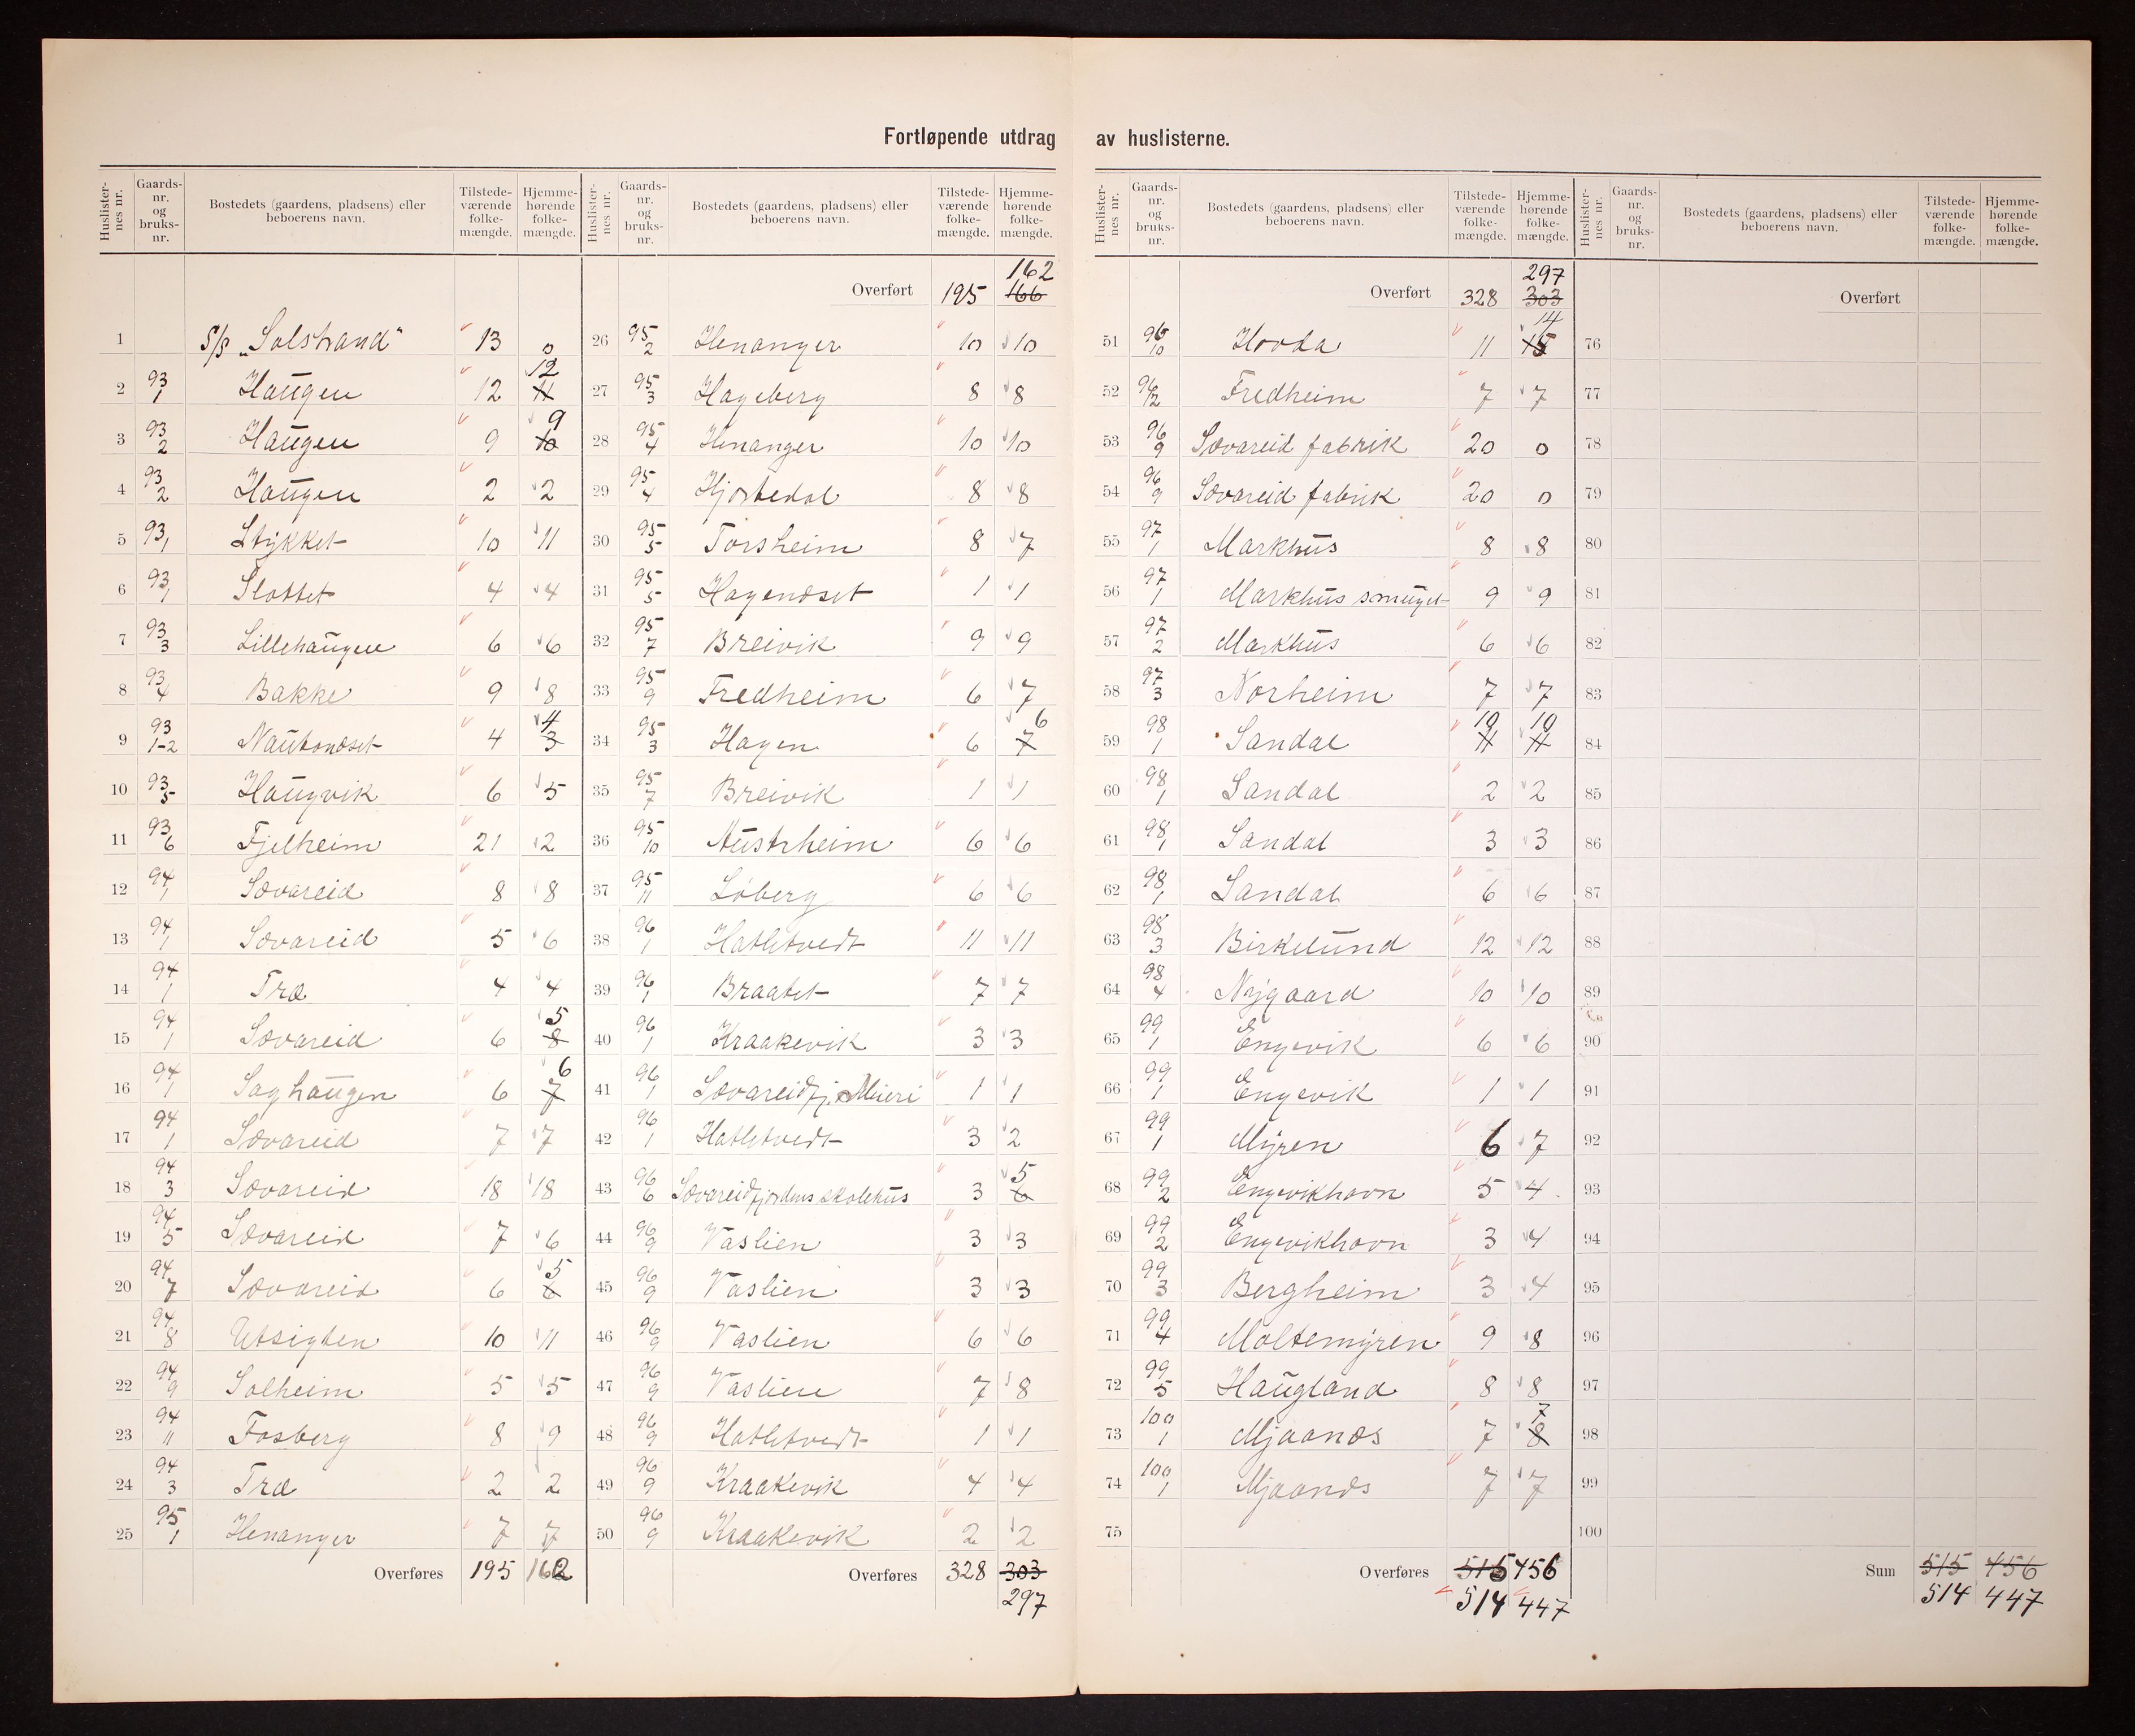 Fortløpende utdrag av huslisterne.
Huslisternes nr. Gaards-nr. og bruks-nr. Bostedets (gaardens, pladsens) eller beboerens navn. Tilstede-værende folke-mængde. Hjemme-hørende folke-mængde.
1 S/S „Solstrand“ 13 0
2 93/1 Haugen 12 11 12
3 93/2 Haugen 9 10 9
4 93/2 Haugen 2 2
5 93/1 Stykket 10 11
6 93/1 Slottet 4 4
7 93/3 Lillehaugen 6 6
8 93/4 Bakke 9 8
9 93/1-2 Nautonæset 4 3 4
10 93/5 Haugvik 6 5
11 93/6 Fjelheim 21 2
12 94/1 Sævareid 8 8
13 94/1 Sævareid 5 6
14 94/1 Træ 4 4
15 94/1 Sævareid 6 8 5
16 94/1 Saghaugen 6 7 6
17 94/1 Sævareid 7 7
18 94/3 Sævareid 18 18
19 94/5 Sævareid 7 6
20 94/7 Sævareid 6 6 5
21 94/8 Utsigten 10 11
22 94/9 Solheim 5 5
23 94/11 Fosberg 8 9
24 94/3 Træ 2 2
25 95/1 Henanger 7 7
Overføres 195 162
Huslisternes nr. Gaards-nr. og bruks-nr. Bostedets (gaardens, pladsens) eller beboerens navn. Tilstede-værende folke-mængde. Hjemme-hørende folke-mængde.
Overført 195 166 162
26 95/2 Henanger 10 10
27 95/3 Hageberg 8 8
28 95/4 Henanger 10 10
29 95/4 Hjortedal 8 8
30 95/5 Torsheim 8 7
31 95/5 Hagenæset 1 1
32 95/7 Breivik 9 9
33 95/9 Fredheim 6 7
34 95/3 Hagen 6 7 6
35 95/7 Breivik 1 1
36 95/10 Austrheim 6 6
37 95/11 Løberg 6 6
38 96/1 Hatletvedt 11 11
39 96/1 Braatet 7 7
40 96/1 Kraakevik 3 3
41 96/1 Sævareidfj. Mieri 1 1
42 96/1 Hatletvedt 3 2
43 96/6 Sævareidfjordens skolehus 3 6 5
44 96/9 Vaslien 3 3
45 96/9 Vaslien 3 3
46 96/9 Vaslien 6 6
47 96/9 Vaslien 7 8
48 96/9 Hatletvedt 1 1
49 96/9 Kraakevik 4 4
50 96/9 Kraakevik 2 2
Overføres 328 303
297
Huslisternes nr. Gaards-nr. og bruks-nr. Bostedets (gaardens, pladsens) eller beboerens navn. Tilstede-værende folke-mængde. Hjemme-hørende folke-mængde.
Overført 328 303 297
51 96/10 Hovda 11 15 14
52 96/12 Fredheim 7 7
53 96/9 Sævareid fabrik 20 0
54 96/9 Sævareid fabrik 20 0
55 97/1 Markhus 8 8
56 97/1 Markhus smuget 9 9
57 97/2 Markhus 6 6
58 97/3 Norheim 7 7
59 98/1 Sandal 11 10 11 10
60 98/1 Sandal 2 2
61 98/1 Sandal 3 3
62 98/1 Sandal 6 6
63 98/3 Birkelund 12 12
64 98/4 Nygaard 10 10
65 99/1 Engevik 6 6
66 99/1 Engevik 1 1
67 99/1 Myren 6 7
68 99/2 Engevikhavn 5 4
69 99/2 Engevikhavn 3 4
70 99/3 Bergheim 3 4
71 99/4 Moltemyren 9 8
72 99/5 Haugland 8 8
73 100/1 Mjaanæs 7 8 7
74 100/1 Mjaanæs 7 7
75
Overføres 515 456
514 447
Huslisternes nr. Gaards-nr. og bruks-nr. Bostedets (gaardens, pladsens) eller beboerens navn. Tilstede-værende folke-mængde. Hjemme-hørende folke-mængde.
Overført
76
77
78
79
80
81
82
83
84
85
86
87
88
89
90
91
92
93
94
95
96
97
98
99
100
Sum 515 456
514 447